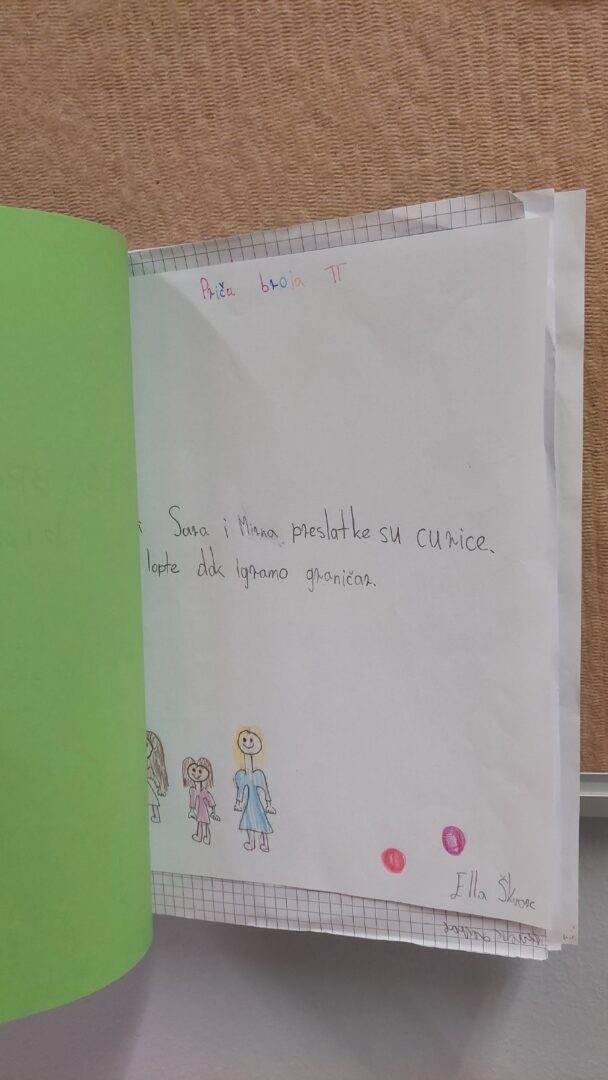 Priča broja π
Sara i Mirna preslatke su curice.
lopte dok Igramo graničar.
Ella Škvorc